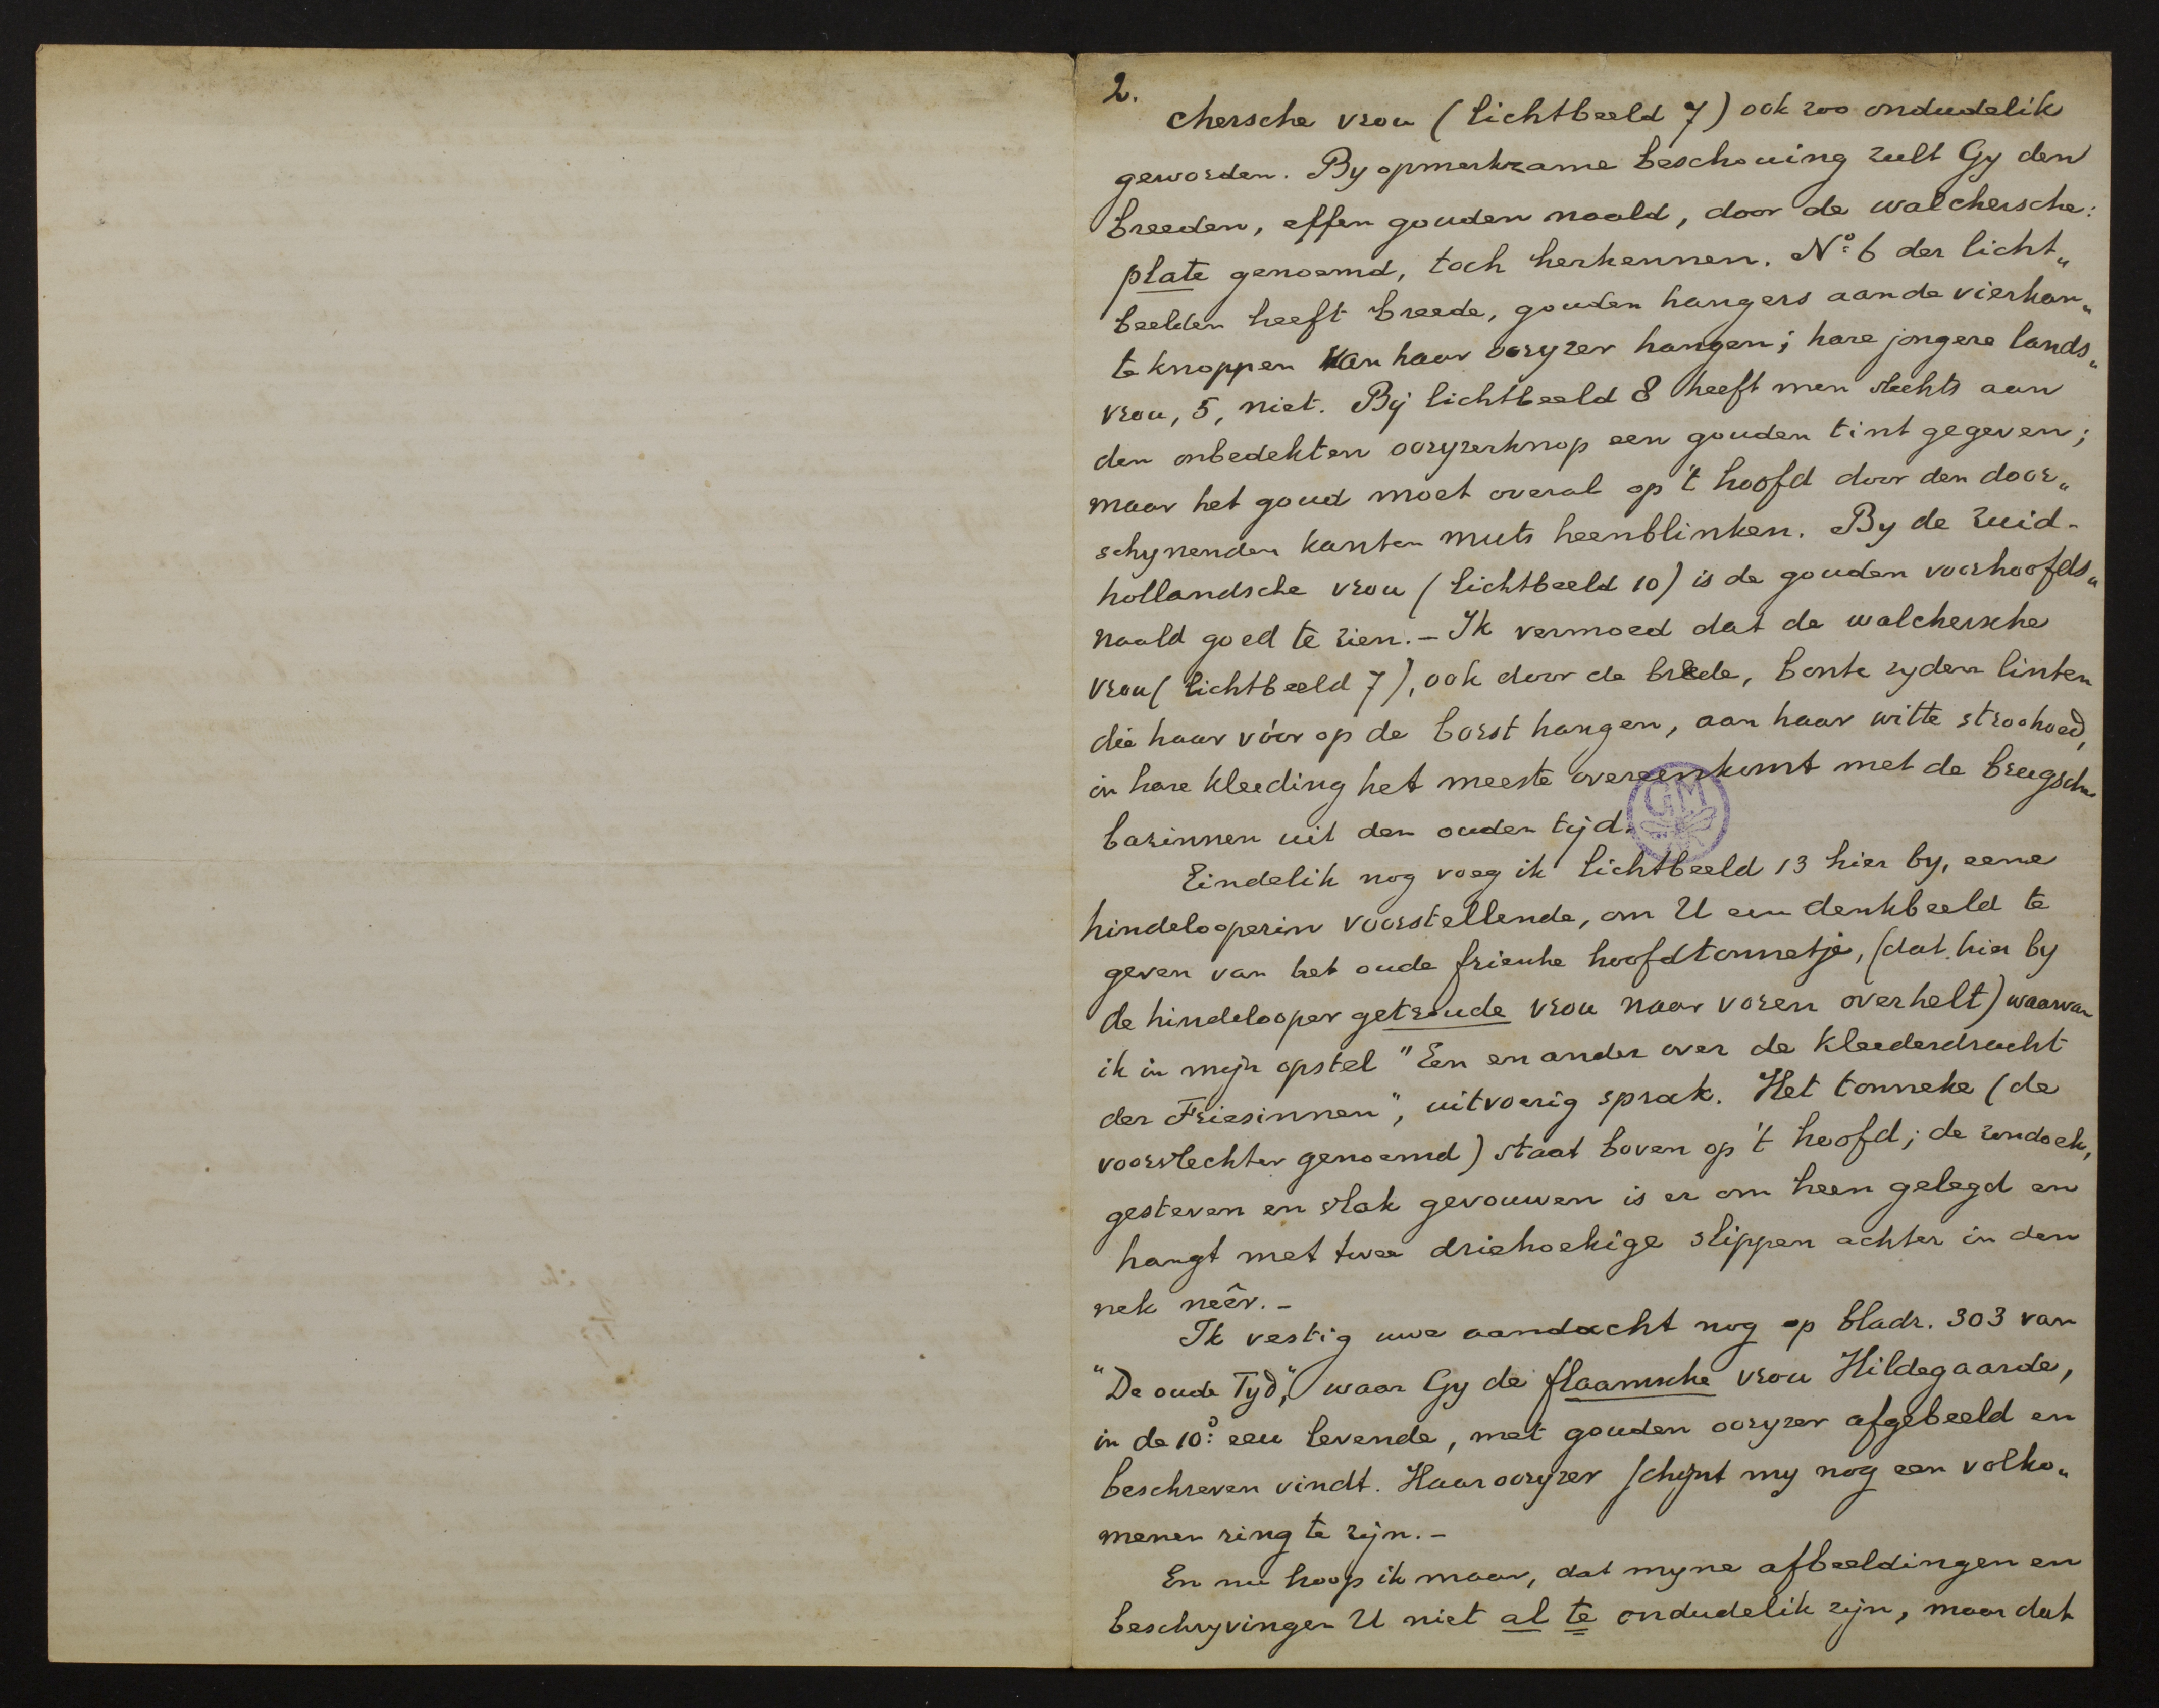 2.
chersche vrou (lichtbeeld 7) ook zoo ondudelik
geworden. By opmerkzame beschouing zult Gy den
breeden, effen gouden naald, door de walchersche:
plate genoemd, toch herkennen. No: 6 der licht„
beelden heeft breede, gouden hangers aan de vierkan„
te knoppen van haar ooryzer hangen; hare jongere lands„
vrou, 5, niet. By lichtbeeld 8 heeft men slechts aan
den onbedekten ooryzerknop een gouden tint gegeven;
maar het goud moet overal op 't hoofd door den door„
schynenden kanten muts heenblinken. By de zuid-
hollandsche vrou (lichtbeeld 10) is de gouden voorhoofds„
naald goed te zien. – Ik vermoed dat de walchersche
vrou (lichtbeeld 7), ook door de breede, bonte zyden linten
die haar vóór op de borst hangen, aan haar witte stroohoed,
in hare kleeding het meeste overeenkomt met de brugsche
barinnen uit den ouden tijd.
GM
Eindelik nog voeg ik lichtbeeld 13 hier by, eene
hindelooperin voorstellende, om U een denkbeeld te
geven van het oude friesche hoofdtonnetje, (dat hier by
de hindelooper getroude vrou naar voren overhelt) waarvan
ik in mijn opstel "Een en ander over de kleederdracht
der Friesinnen", uitvoerig sprak. Het tonneke (de
voorslechter genoemd) staat boven op 't hoofd; de sondoek,
gesteven en vlak gevouwen is er om heen gelegd en
hangt met twee driehoekige slippen achter in den
nek neêr. –
Ik vestig uwe aandacht nog op bladz. 303 van
"De oude Tyd", waar Gy de flaamsche vrou Hildegaarde,
in de 10e: eeu levende, met gouden ooryzer afgebeeld en
beschreven vindt. Haar ooryzer schijnt my nog een volko„
menen ring te zijn. –
En nu hoop ik maar, dat myne afbeeldingen en
beschryvingen U niet al te ondudelik zijn, maar dat